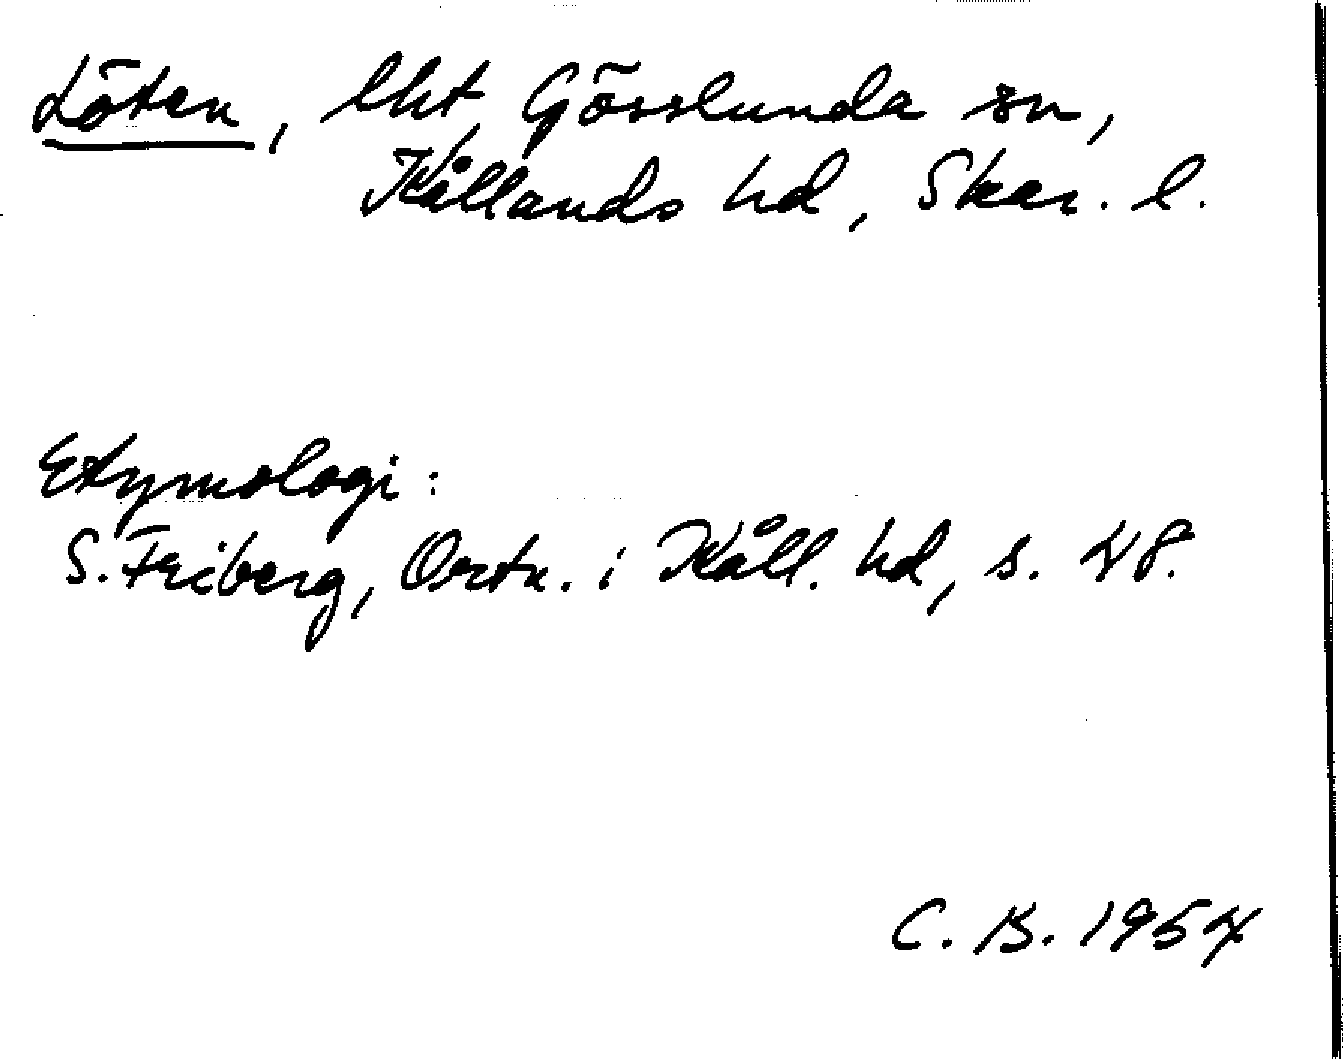 Löten, lht, Gösslunda sn,
Kållands hd, Skar. l.
Etymologi:
S. Friberg, Ortn. i Kåll. hd, s. 48.
C. B. 1957